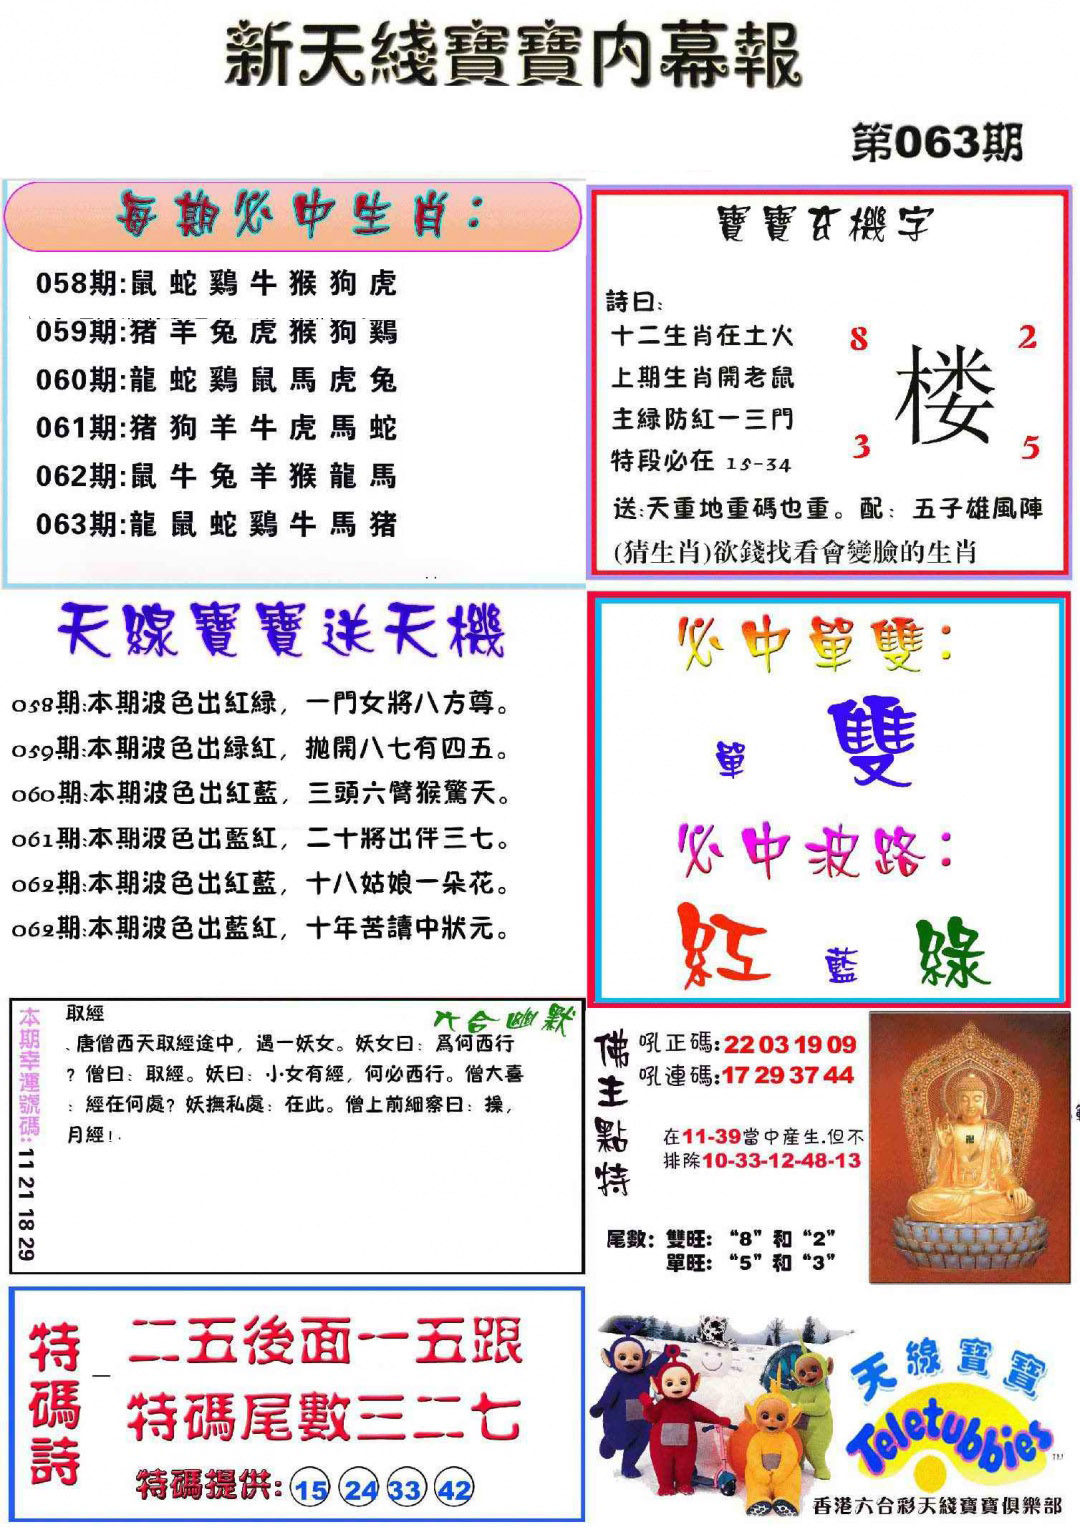 新天綫寶寶内幕報
第063期
每期必中生肖：
058期:鼠蛇鷄牛猴狗虎
059期:猪羊兔虎猴狗鷄
060期:龍蛇鷄鼠馬虎兔
061期:猪狗羊牛虎馬蛇
062期:鼠牛兔羊猴龍馬
063期:龍鼠蛇鷄牛馬猪
寶寶玄機字
詩曰:
十二生肖在土火
上期生肖開老鼠
主緑防紅一三門
特段必在 15-34
8 2
楼
3 5
送:天重地重碼也重。配：五子雄風陣
(猜生肖)欲錢找看會變臉的生肖
天線寶寶送天機
058期:本期波色出紅緑，一門女將八方尊。
059期:本期波色出緑紅，抛開八七有四五。
060期:本期波色出紅藍，三頭六臂猴驚天。
061期:本期波色出藍紅，二十將出伴三七。
062期:本期波色出紅藍，十八姑娘一朵花。
062期:本期波色出藍紅，十年苦讀中狀元。
必中單雙：
單 雙
必中波路：
紅 藍 綠
本期幸運號碼: 11 21 18 29
六合幽默
取經
、唐僧西天取經途中，遇一妖女。妖女曰：爲何西行
？僧曰：取經。妖曰：小女有經，何必西行。僧大喜
：經在何處？妖撫私處：在此。僧上前細察曰：操，
月經！.
佛主點特
吼正碼:22 03 19 09
吼連碼:17 29 37 44
在11-39當中産生.但不
排除10-33-12-48-13
尾數：雙旺：“8”和“2”
單旺：“5”和“3”
特碼詩
二五後面一五跟
特碼尾數三二七
特碼提供: 15 24 33 42
天線寶寶
Teletubbies
TM
香港六合彩天綫寶寶俱樂部